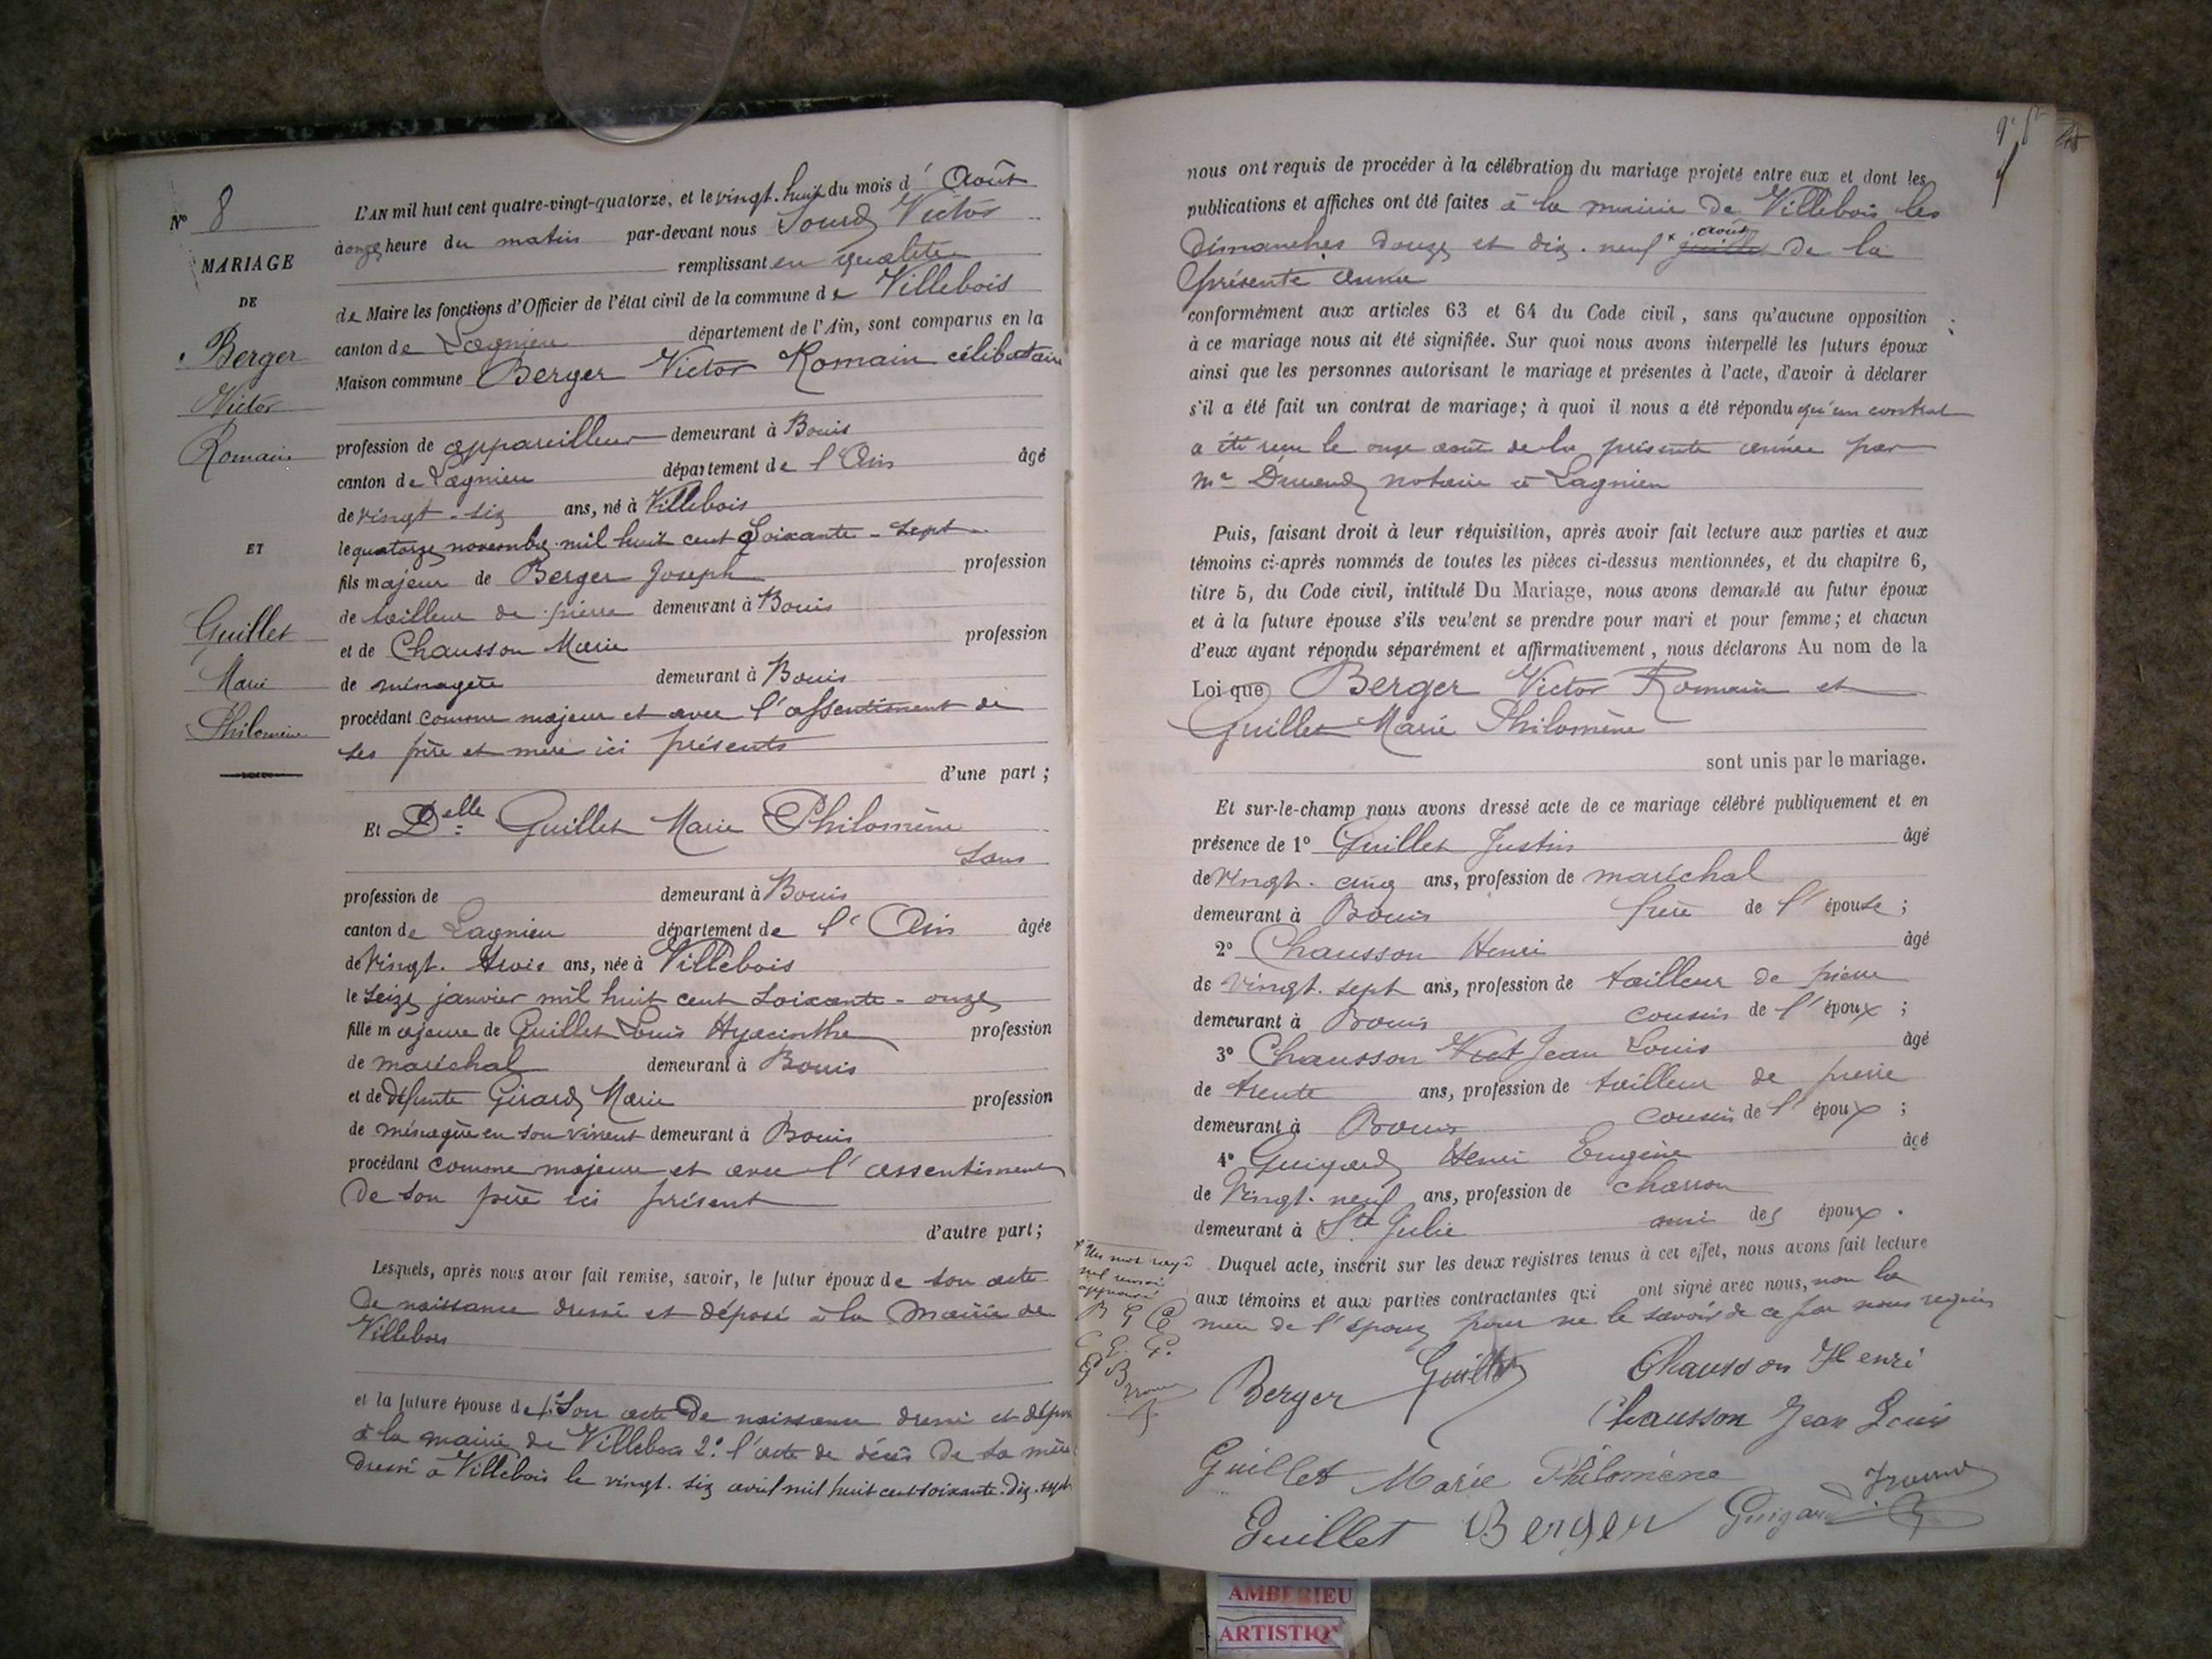 N° 8
MARIAGE
DE
Berger
Victor
Romain
ET
Guillet
Marie
Philomène
L'AN mil huit cent quatre-vingt-quatorze, et le vingt-huit du mois d'Août
à onze heure du matin par-devant nous Sourd Victor
remplissant en qualité
de Maire les fonctions d'Officier de l'état civil de la commune de Villebois
canton de Lagnieu département de l'Ain, sont comparus en la
Maison commune Berger Victor Romain célibataire
profession de appareilleur demeurant à Bouis
canton de Lagnieu département de l'Ain âgé
de vingt-six ans, né à Villebois
le quatorze novembre mil huit cent soixante-sept
fils majeur de Berger Joseph profession
de tailleur de pierre demeurant à Bouis
et de Chausson Marie profession
de ménagère demeurant à Bouis
procédant comme majeur et avec l'assentiment de
ses père et mère ici présents
d'une part ;
Et Delle Guillet Marie Philomène
sans
profession de demeurant à Bouis
canton de Lagnieu département de l'Ain âgée
de vingt-trois ans, née à Villebois
le seize janvier mil huit cent soixante-onze
fille majeure de Guillet Louis Hyacinthe profession
de maréchal demeurant à Bouis
et de défunte Girard Marie profession
de ménagère en son vivent demeurant à Bouis
procédant comme majeure et avec l'assentiment
de son père ici présent
d'autre part ;
Lesquels, après nous avoir fait remise, savoir, le futur époux de son acte
de naissance dressé et déposé à la Mairie de
Villebois
et la future épouse de 1° son acte de naissance dressé et déposé
à la mairie de Villebois 2° l'acte de décès de sa mère
dressé à Villebois le vingt-six avril mil huit cent soixante-dix-sept
nous ont requis de procéder à la célébration du mariage projeté entre eux et dont les
publications et affiches ont été faites à la mairie de Villebois les
août
Dimanches douze et dix-neuf × de la
présente année
conformément aux articles 63 et 64 du Code civil, sans qu'aucune opposition
à ce mariage nous ait été signifiée. Sur quoi nous avons interpellé les futurs époux
ainsi que les personnes autorisant le mariage et présentes à l'acte, d'avoir à déclarer
s'il a été fait un contrat de mariage; à quoi il nous a été répondu qu'un contrat
a été reçu le onze août de la présente année par
Me Durand notaire à Lagnieu
Puis, faisant droit à leur réquisition, après avoir fait lecture aux parties et aux
témoins ci-après nommés de toutes les pièces ci-dessus mentionnées, et du chapitre 6,
titre 5, du Code civil, intitulé Du Mariage, nous avons demandé au futur époux
et à la future épouse s'ils veulent se prendre pour mari et pour femme; et chacun
d'eux ayant répondu séparément et affirmativement, nous déclarons Au nom de la
Loi que Berger Victor Romain et
Guillet Marie Philomène
sont unis par le mariage.
Et sur-le-champ nous avons dressé acte de ce mariage célébré publiquement et en
présence de 1° Guillet Justin âgé
de vingt-cinq ans, profession de maréchal
demeurant à Bouis frère de l'épouse ;
2° Chausson Henri âgé
de vingt-sept ans, profession de tailleur de pierre
demeurant à Bouis cousin de l'époux ;
3° Chausson Vict Jean Louis âgé
de trente ans, profession de tailleur de pierre
demeurant à Bouis cousin de l'époux ;
4° Guigard Henri Eugène âgé
de vingt-neuf ans, profession de charron
demeurant à Ste Julie ami des époux.
Duquel acte, inscrit sur les deux registres tenus à cet effet, nous avons fait lecture
aux témoins et aux parties contractantes qui ont signé avec nous, non la
mère de l'époux pour ne le savoir de ce par nous requis
× Un mot rayé
nul
approuvé
B G
Berger Guillet Chausson Henri
Chausson Jean Louis
Guillet Marie Philomène
Guillet Berger Guigard
AMBERIEU
ARTISTIQ